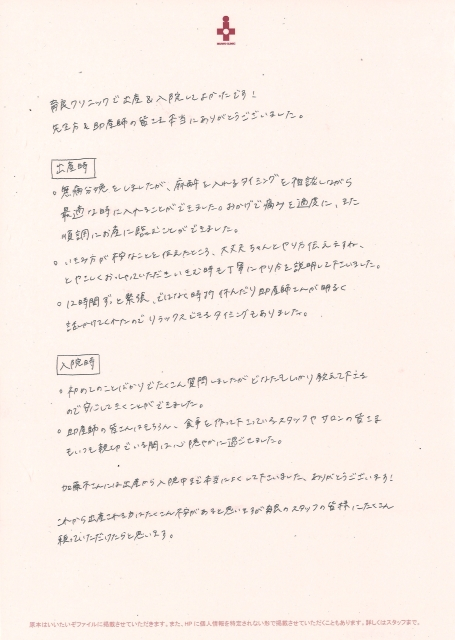 育良クリニックで出産&入院してよかったです!
先生方&助産師の皆さま本当にありがとうございました。
出産時
○ 無痛分娩をしましたが、麻酔を入れるタイミングを相談しながら
最適な時に入れることができました。おかげで痛みを適度に、また
順調にお産に臨むことができました。
○ いきみ方が不安なことを伝えたところ、大丈夫ちゃんとやり方伝えますね、
とやさしくおっしゃっていただきいきむ時も丁寧にやり方を説明して下さいました。
○ 12時間ずっと緊張、ではなく時折休んだり助産師さんが明るく
話しかけてくれたのでリラックスできるタイミングもありました。
入院時
○ 初めてのことばかりでたくさん質問しましたがどなたもしっかり教えて下さる
ので安心してきくことができました。
○ 助産師の皆さんはもちろん、食事を作って下さっているスタッフやサロンの皆さま
もいつも親切でいる間は心穏やかに過ごせました。
加藤さんには出産から入院中まで本当によくして下さいました、ありがとうございます!
これから出産される方はたくさん不安があると思いますが育良のスタッフの皆様にたくさん
頼っていただけたらと思います。
原本はいいたいぞファイルに掲載させていただきます。また、HPに個人情報を特定されない形で掲載させていただくこともあります。詳しくはスタッフまで。